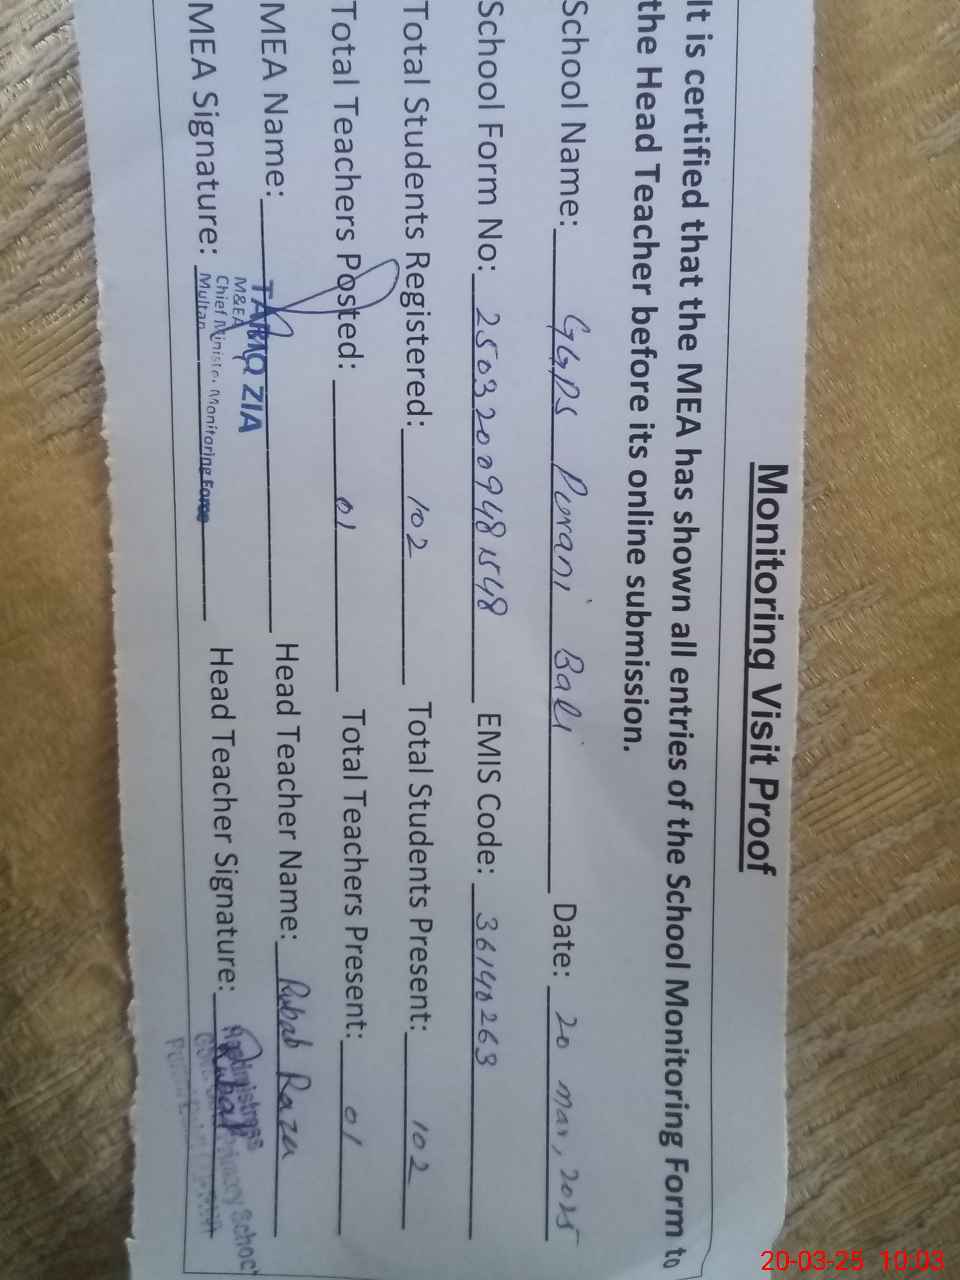 Monitoring Visit Proof
It is certified that the MEA has shown all entries of the School Monitoring Form to
the Head Teacher before its online submission.
School Name: GGPS Purani Bali Date: 20 mar, 2025
School Form No: 25032009481548 EMIS Code: 36140263
Total Students Registered: 102 Total Students Present: 102
Total Teachers Posted: 01 Total Teachers Present: 01
MEA Name: Head Teacher Name: Rubab Raza
TARIQ ZIA
M&EA
MEA Signature: Head Teacher Signature: Rubab
Chief Minister Monitoring Force
Multan
Headmistress
Primary School
20-03-25 10:03